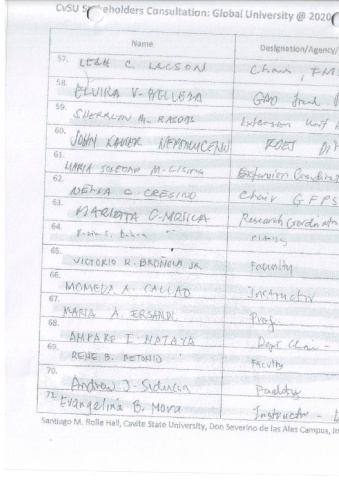 CvSU Stakeholders Consultation: Global University @ 2020
Name Designation/Agency/
57. LEAH C. LACSON Chair, FM
58. ELVIRA V. GAD
59. SHERRLYN M. RASDAS Extension Unit
60. JOHN XAVIER NEPOMUCENO RDET
61. MARIA SOLEDAD M. LISING Extension Coordinator
62. C. CRESINO Chair GFPS
63. MARIETTA C. MOJICA Research Coordinator
64.
65. VICTORIO R. BROÑOLA JR. Faculty
66. A. CALLAO Instructor
67. MARIA A. ERSANDO Prof.
68. AMPARO I. MATAYA Dept. Chair -
69. RENE B. BETONIO Faculty
70. Andrew J. Siducon Faculty
71. Evangelina B. Mora Instructor -
Santiago M. Rolle Hall, Cavite State University, Don Severino de las Alas Campus, In